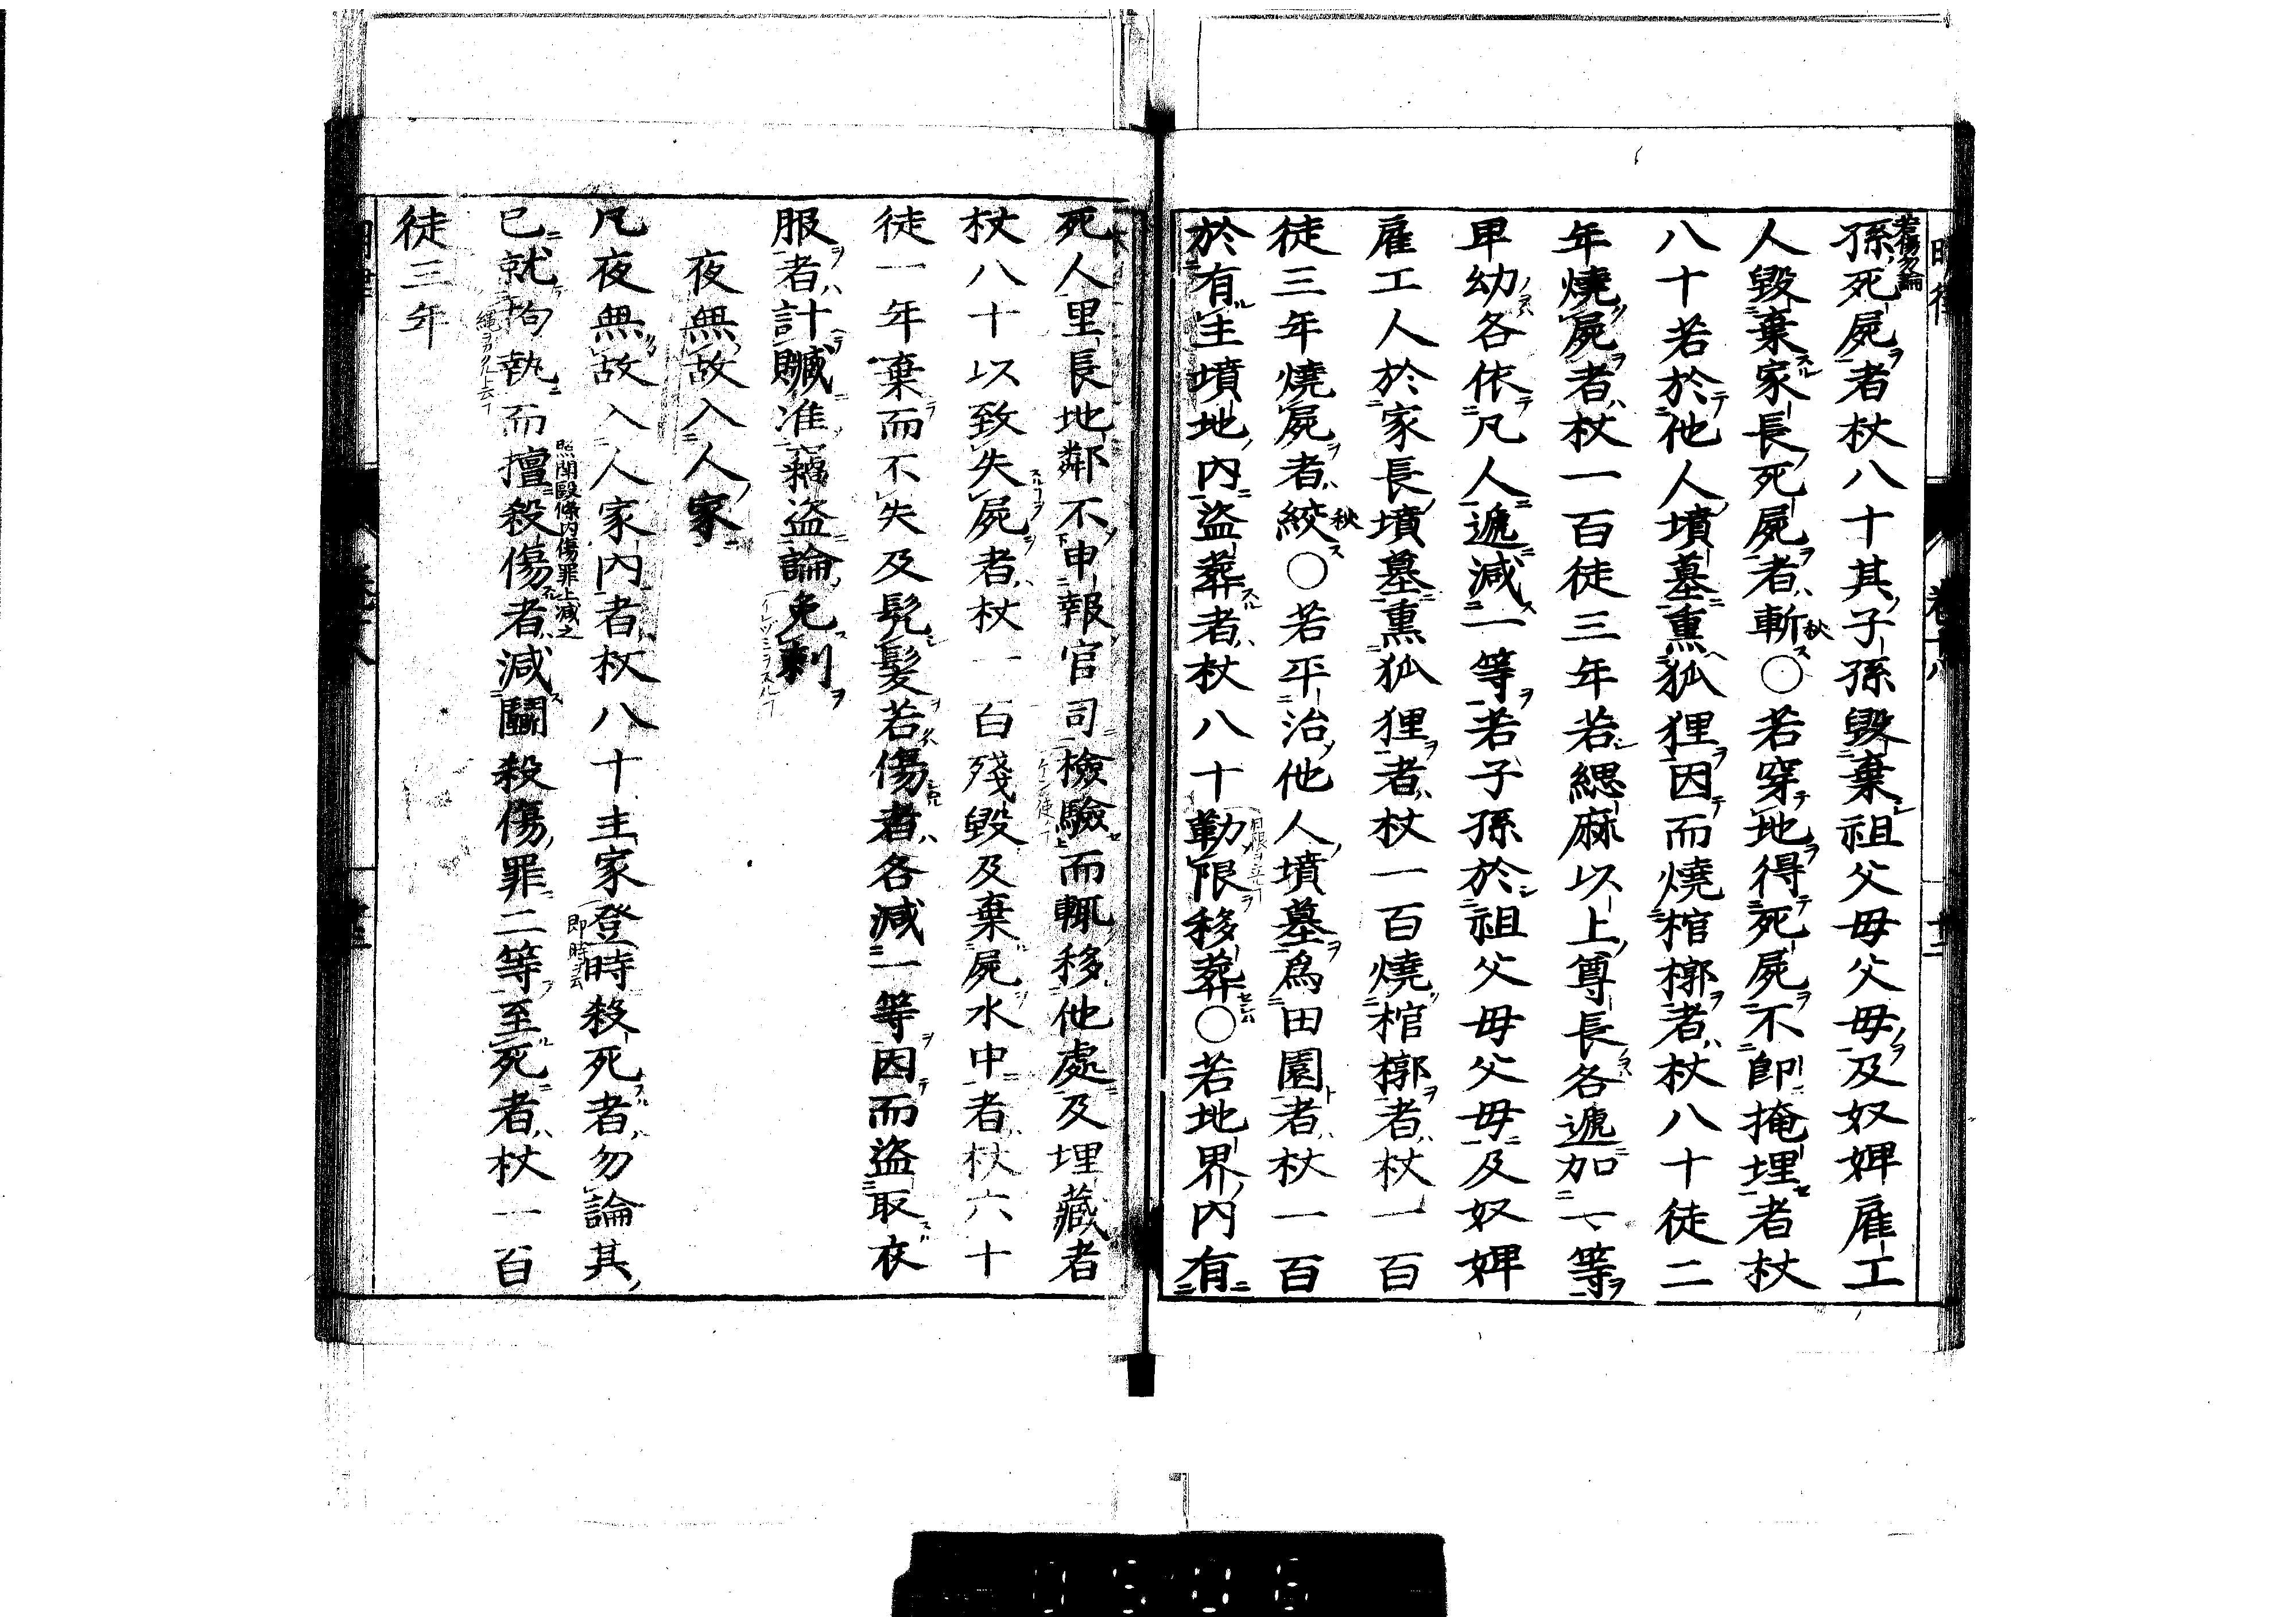 孫死屍者杖八十其子孫毀棄祖父母父母及奴婢雇工
人毀棄家長死屍者斬○若穿地得死屍不即掩埋者杖
八十若於他人墳墓熏狐狸因而燒棺槨者杖八十徒二
年燒屍者杖一百徒三年若緦麻以上尊長各遞加一等
卑幼各依凡人遞減一等若子孫於祖父母父母及奴婢
雇工人於家長墳墓熏狐狸者杖一百燒棺槨者杖一百
徒三年燒屍者絞○若平治他人墳墓爲田園者杖一百
於有主墳地內盜葬者杖八十勒限移葬○若地界內有
死人里長地鄰不申報官司檢驗而輒移他處及埋藏者
杖八十以致失屍者杖一百殘毀及棄屍水中者杖六十
徒一年棄而不失及髡髮若傷者各減一等因而盜取衣
服者計贓准竊盜論免刺
夜無故入人家
凡夜無故入人家內者杖八十主家登時殺死者勿論其
即時
已就拘執而擅殺傷者減鬭殺傷罪二等至死者杖一百
照鬭毆條內傷罪上減之
徒三年